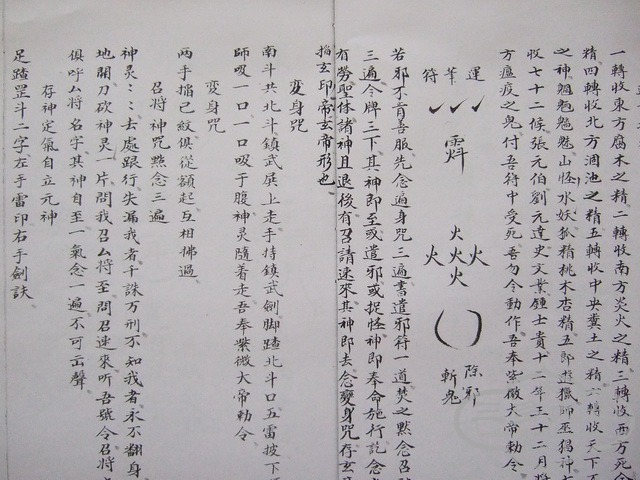 一轉收東方腐木之精二轉收南方炎火之精三轉收西方死金
精四轉收北方涸池之精五轉收中央糞土之精六轉收天下
之神魍魎魑魅山怪水妖狐精桃木杏精五郎遊獵師巫猖神
收七十二候張元伯劉元達史文業鍾士貴十二年王十二月將
方瘟疫之鬼付吾符中受死吾勿令動作吾奉紫微大帝勅令
運筆符
火火火火火
除邪
斬鬼
若邪不肯善服先念遍身咒三遍書遣邪符一道焚之黙念召
三遍令牌三下其神即至或遣邪或捉怪神即奉命施行訖念
有勞聖体諸神且退後有召請速來其神即去念變身咒存玄
掐玄印帝玄帝形也
變身咒
南斗共北斗鎮武展上走手持鎮武劍脚踏北斗口五雷披下
師吸一口一口吸于腹神灵隨着走吾奉紫微大帝勅令
變身咒
兩手掐己紋俱從額起互相拂過
召將神咒黙念三遍
神灵灵去處跟行失漏我者千誅万刑不知我者永不翻身
地開刀砍神灵一片問我召厶將至問召速來听吾號令召將
俱呼厶將名字其神自至一氣念一遍不可出聲
存神定氣自立元神
足踏罡斗二字左手雷印右手劍訣